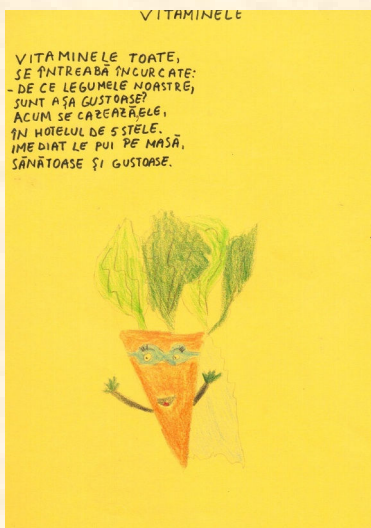 VITAMINELE
VITAMINELE TOATE,
SE ÎNTREABĂ ÎNCURCATE:
- DE CE LEGUMELE NOASTRE,
SUNT AȘA GUSTOASE?
ACUM SE CAZEAZĂ,ELE,
ÎN HOTELUL DE 5 STELE.
IMEDIAT LE PUI PE MASĂ,
SĂNĂTOASE ȘI GUSTOASE.